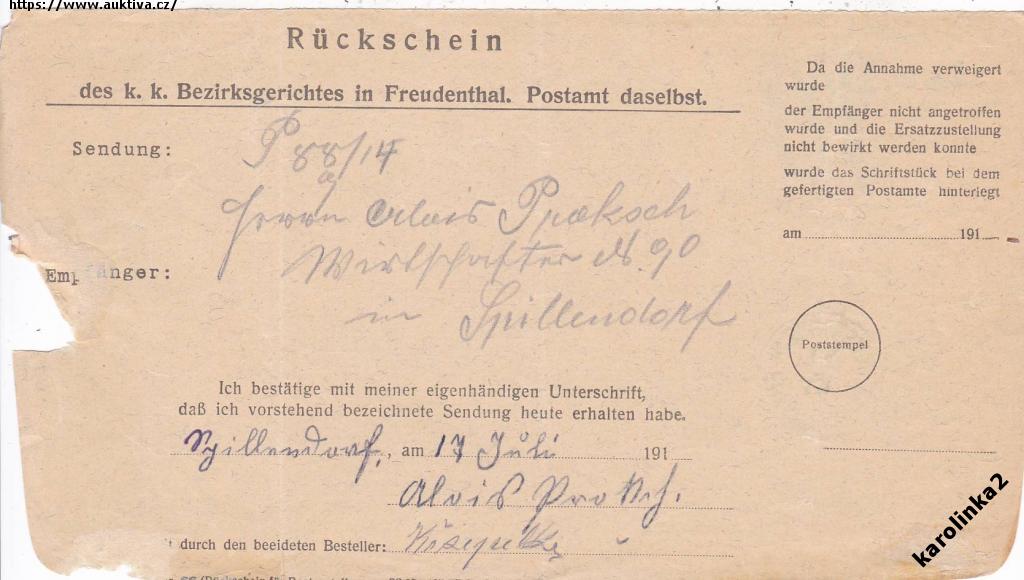 https://www.auktiva.cz/
Rückschein
des k. k. Bezirksgerichtes in Freudenthal. Postamt daselbst.
Sendung:
P 88/14
Herrn Alois
Wirtschafter 90
Empfänger:
in Spillendorf
Ich bestätige mit meiner eigenhändigen Unterschrift,
daß ich vorstehend bezeichnete Sendung heute erhalten habe.
Spillendorf, am 17 Juli 191
Alois
durch den beeideten Besteller:
Da die Annahme verweigert
wurde
der Empfänger nicht angetroffen
wurde und die Ersatzzustellung
nicht bewirkt werden konnte
wurde das Schriftstück bei dem
gefertigten Postamte hinterlegt
am 191
Poststempel
karolinka2